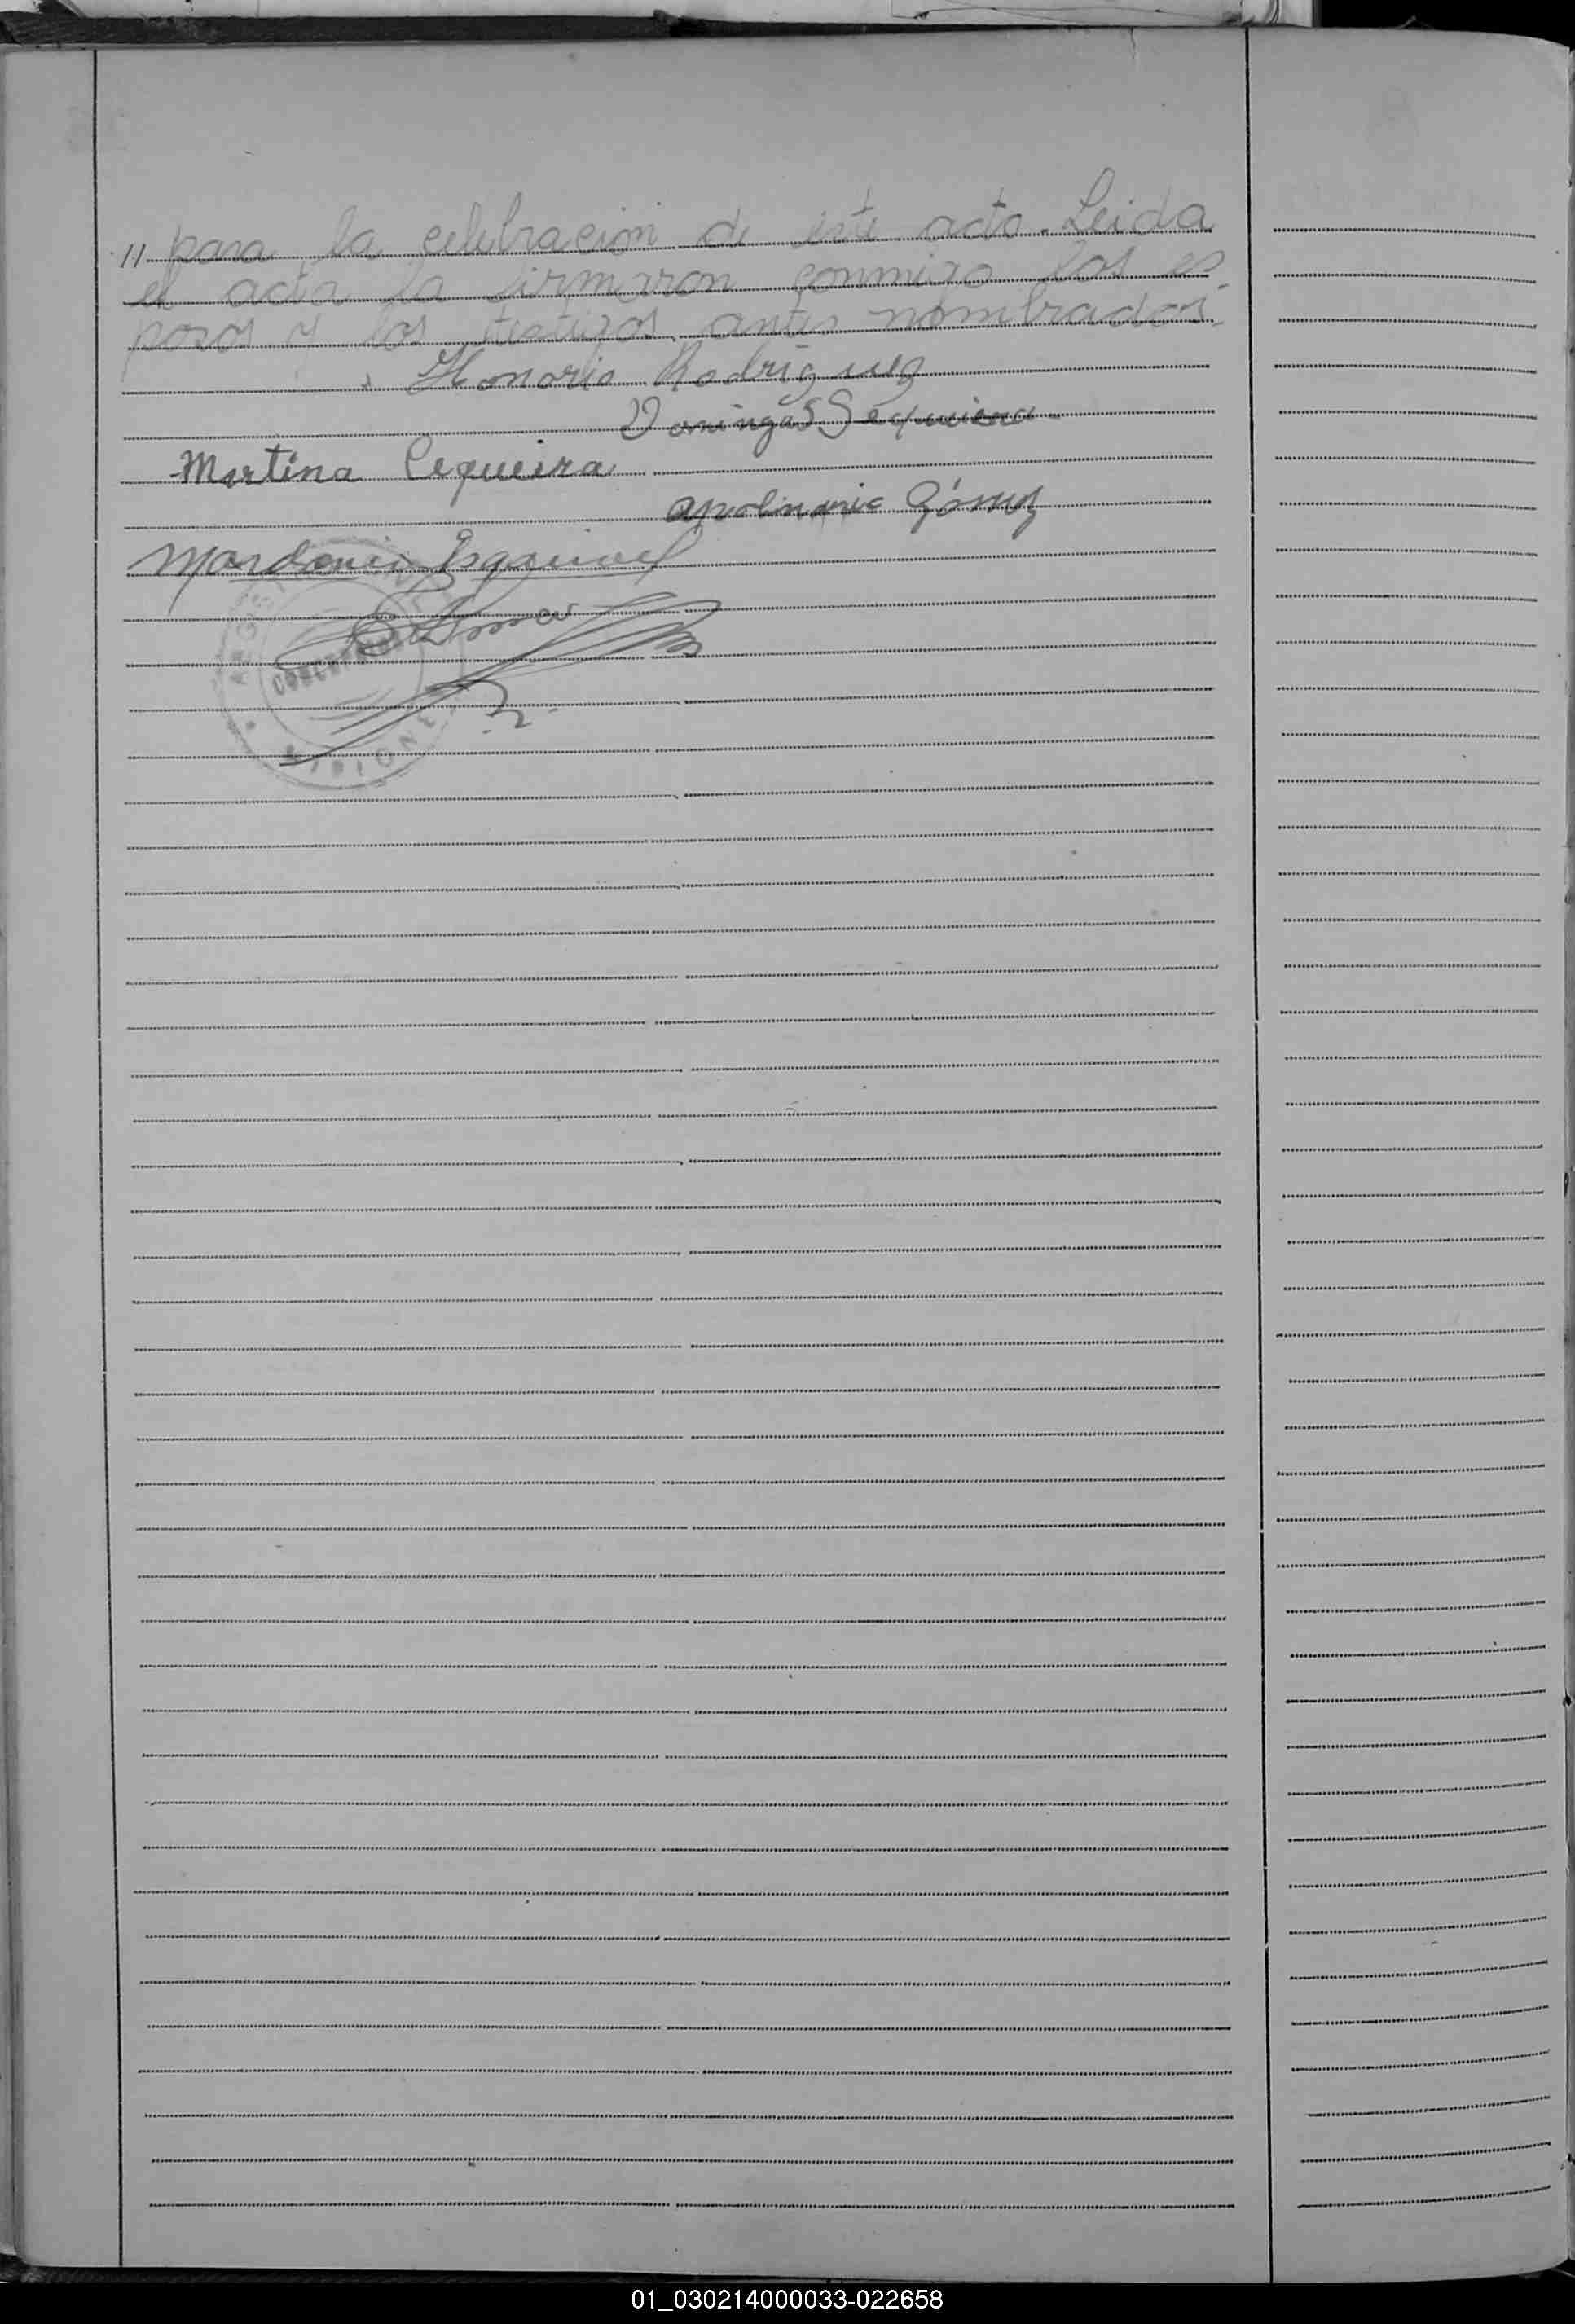 // para la celebracion de este acto. Leida
el acta la firmaron conmigo los es
posos y los testigos antes nombrados.
Honorio Rodriguez
Domingas Sequeira
Martina Cequeira
Apolinario Gómez
Mardonio Esquivel
01_030214000033-022658